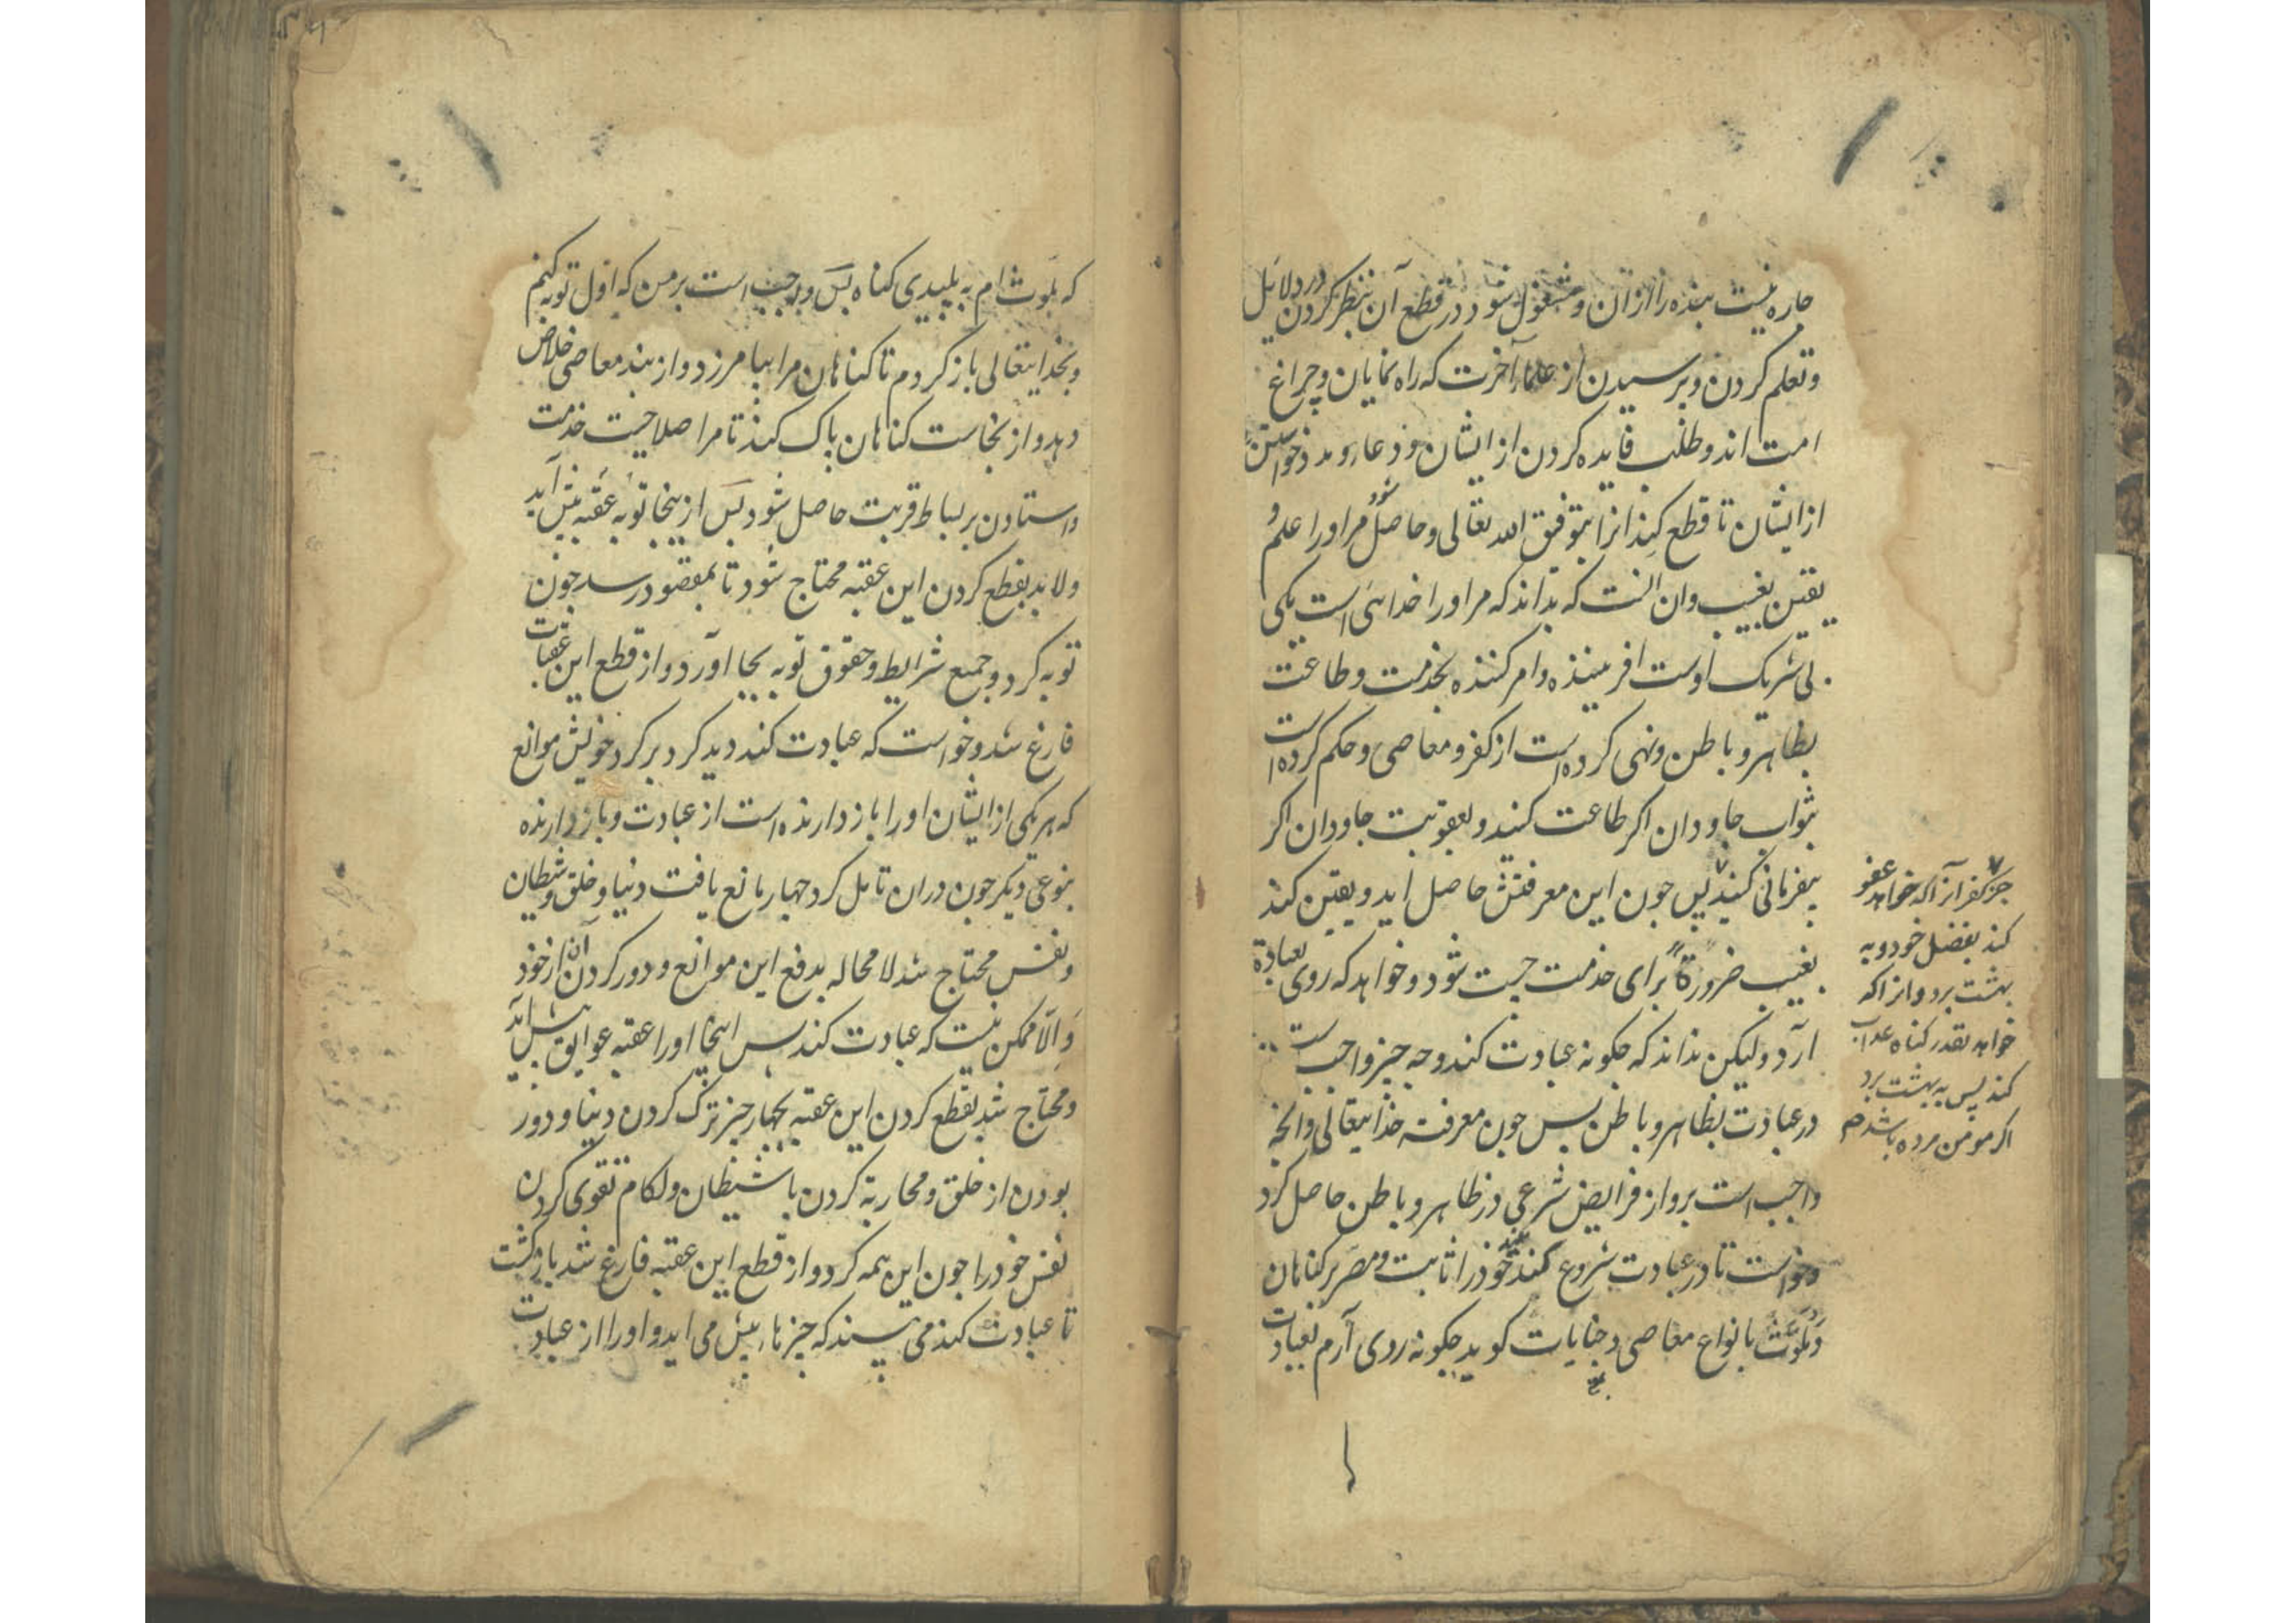 چاره نیست بنده را ازان و مشغول شود در قطع آن بنظر کردن در دلایل
و تعلم کردن و پرسیدن از علماء آخرت که راه نمایان و چراغ
امت اند و طلب فایده کردن از ایشان و دعا و مدد خواستن
از ایشان تا قطع کند انرا بتوفیق الله تعالی و حاصل شود مر اورا علم و
یقین بغیب وان انست که بداند که مر اورا خدائی است یکی
بی شریک اوست افریننده و امر کننده بخدمت و طاعت
بظاهر و باطن و نهی کرده است از کفر و معاصی و حکم کرده است
بثواب جاودان اکر طاعت کند و بعقوبت جاودان اکر
بیفرمانی کند پس جون این معرفتش حاصل اید و یقین کند
بغیب ضرورةً برای خدمت جست شود و خواهد که روی بعبادة
آرد و لیکن نداند که جکونه عبادت کند و جه جیز واجب است
در عبادت بظاهر و باطن پس جون معرفت خدایتعالی و انچه
واجب است برو از فرایض شرعی در ظاهر و باطن حاصل کرد
و خواست تا در عبادت شروع کند خود را ثابت و مصر بر کناهان
و ملوث بانواع معاصی و جنایات کوید جکونه روی آرم بعبادت
جز کفر آنرا که خواهد عفو
کند بفضل خود و به
بهشت برد و انرا که
خواهد بقدر کناه عذاب
کند پس به بهشت برد
اکر مومن مرده باشد
که ملوث ام به پلیدی کناه پس واجب است بر من که اول توبه کنم
و بخدایتعالی باز کردم تا کناهان مرا بیامرزد و از بند معاصی خلاص
دهد و از نجاست کناهان پاک کند تا مرا صلاحیت خدمت
و استادن بر بساط قربت حاصل شود پس ازینجا توبه عقبه پیش آید
و لابد بقطع کردن این عقبه محتاج شود تا بمقصود رسد جون
توبه کرد و جمیع شرایط و حقوق توبه بجا آورد و از قطع این عقبات
فارغ شد و خواست که عبادت کند دید کرد بر کرد خویش موانع
که هر یکی از ایشان اورا باز دارنده است از عبادت و باز دارنده
بنوعی دیکر جون دران تامل کرد جهار مانع یافت دنیا و خلق و شیطان
و نفس محتاج شد لا محاله بدفع این موانع و دور کردن آن از خود
و الّا ممکن نیست که عبادت کند پس اینجا اورا عقبه عوایق پیش آید
و محتاج شد بقطع کردن این عقبه بجهار جیز ترک کردن دنیا و دور
بودن از خلق و محاربة کردن با شیطان و لکام تقوی کردن
نفس خود را جون این همه کرد و از قطع این عقبه فارغ شد باز کشت
تا عبادت کند می بیند که جیزها پیش می اید و اورا از عبادت